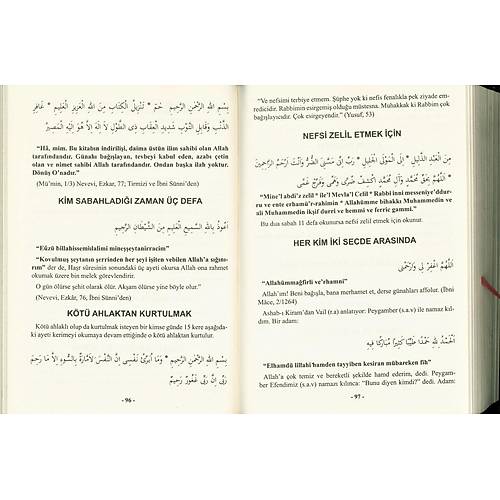 بِسْمِ اللهِ الرَّحْمٰنِ الرَّحِيمِ حٰمٓ * تَنْزِيلُ الْكِتَابِ مِنَ اللهِ الْعَزِيزِ الْعَلِيمِ * غَافِرِ
الذَّنْبِ وَقَابِلِ التَّوْبِ شَدِيدِ الْعِقَابِ ذِي الطَّوْلِ لَا اِلٰهَ اِلَّا هُوَ اِلَيْهِ الْمَصِيرُ
"Hâ, mim. Bu kitabın indirilişi, daima üstün ilim sahibi olan Allah
tarafındandır. Günahı bağışlayan, tevbeyi kabul eden, azabı çetin
olan ve nimet sahibi Allah tarafındandır. Ondan başka ilah yoktur.
Dönüş O'nadır."
(Mü'min, 1/3) Nevevi, Ezkar, 77; Tirmizi ve İbni Sünni'den)
KİM SABAHLADIĞI ZAMAN ÜÇ DEFA
اَعُوذُ بِاللهِ السَّمِيعِ الْعَلِيمِ مِنَ الشَّيْطَانِ الرَّجِيمِ
"Eûzü billahissemiîalimi mineşşeytanirracim"
"Kovulmuş şeytanın şerrinden her şeyi işiten vebilen Allah'a sığını-
rım" der de, Haşr sûresinin sonundaki üç ayeti okursa Allah ona rahmet
okumak üzere bin melek görevlendirir.
O gün şehid olarak ölür. Akşam olürse yine böyle olur."
(Nevevi, Ezkâr, 76, İbni Sünni'den)
KÖTÜ AHLAKTAN KURTULMAK
Kötü ahlaklı olup da kurtulmak isteyen bir kimse günde 15 kere aşağıda-
ki ayeti kerimeyi okumaya devam ettiğinde o kötü ahlaktan kurtulur.
بِسْمِ اللهِ الرَّحْمٰنِ الرَّحِيمِ * وَمَا اُبَرِّئُ نَفْسِي اِنَّ النَّفْسَ لَاَمَّارَةٌ بِالسُّوءِ اِلَّا مَا رَحِمَ
رَبِّي اِنَّ رَبِّي غَفُورٌ رَحِيمٌ
- 96 -
"Ve nefsimi terbiye etmem. Şüphe yok ki nefis fenalıkla pek ziyade em-
redicidir. Rabbimin esirgemiş olduğu müstesna. Muhakkak ki Rabbim çok
bağışlayıcıdır. Çok esirgeyendir." (Yusuf, 53)
NEFSİ ZELİL ETMEK İÇİN
مِنَ الْعَبْدِ الذَّلِيلِ * اِلَى الْمَوْلَى الْجَلِيلِ * رَبِّ اِنِّي مَسَّنِيَ الضُّرُّ وَاَنْتَ اَرْحَمُ الرَّاحِمِينَ
* اَللّٰهُمَّ بِحَقِّ مُحَمَّدٍ وَآلِ مُحَمَّدٍ اِكْشِفْ ضُرِّي وَهَمِّي وَفَرِّجْ غَمِّي
"Mine'l abdi'z zelil * ile'l Mevla'l Celil * Rabbi inni messeniye'ddur-
ru ve ente erhamü'r-rahimin * Allahümme bihakkı Muhammedin ve
ali Muhammedin ikşif durri ve hemmi ve ferric gammi."
Bu dua sabah 11 defa okunursa nefsi zelil etmek için okunur.
HER KİM İKİ SECDE ARASINDA
اَللّٰهُمَّ اغْفِرْ لِي وَارْحَمْنِي
"Allahümmağfirli ve'rhamni"
Allah'ım! Beni bağışla, bana merhamet et, derse günahları affolur. (İbni
Mâce, 2/1264)
Ashab-ı Kiram'dan Vail (r.a) anlatıyor: Peygamber (s.a.v) ile namaz kıl-
dım. Bir adam:
اَلْحَمْدُ لِلّٰهِ حَمْدًا طَيِّبًا كَثِيرًا مُبَارَكًا فِيهِ
"Elhamdü lillahi'hamden tayyiben kesiran mübareken fih"
Allah'a çok temiz ve bereketli şekilde hamd ederim, dedi. Peygam-
ber Efendimiz (s.a.v) namazı kılınca: "Bunu diyen kimdi?" dedi. Adam:
- 97 -